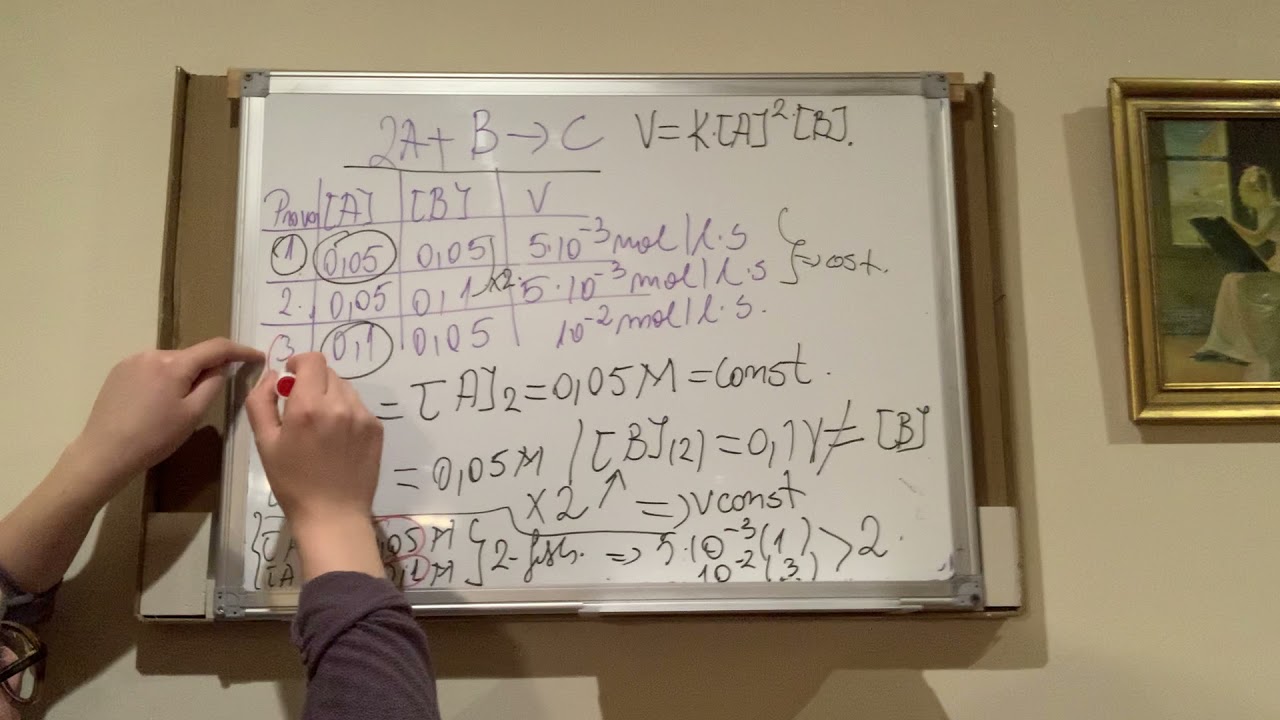 2A + B → C V = K·[A]²·[B].
Prova [A] [B] V
1 0,05 0,05 5·10⁻³ mol/l·s
2. 0,05 0,1 ×2 5·10⁻³ mol/l·s
3 0,1 0,05 10⁻² mol/l·s.
= [A]₂ = 0,05M = const.
= 0,05M / [B](2) = 0,1 ≠ [B]
×2↑ => v const
05M
0,1M } 2- => 5·10⁻³ (1) > 2.
10⁻² (3)